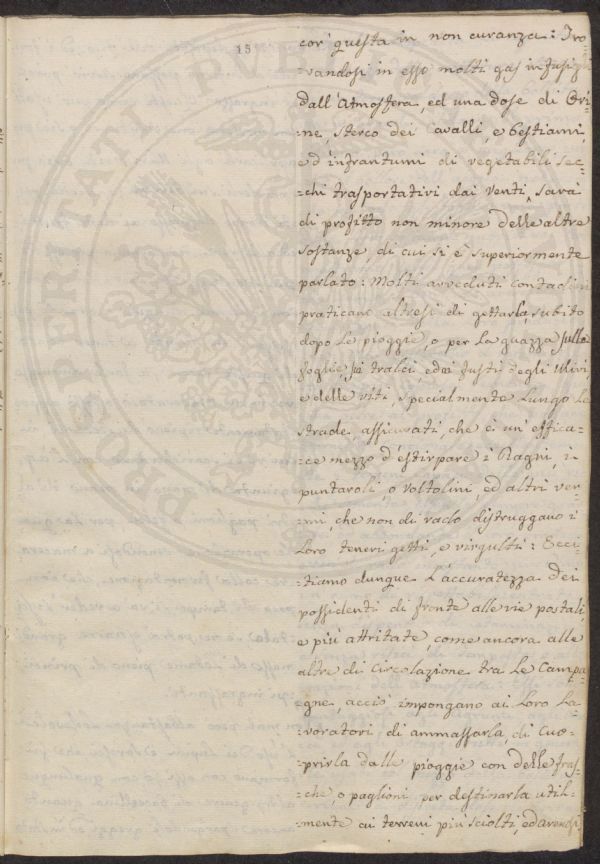 15
cor' questa in non curanza: Tro-
vandosi in esso molti gas infusizj
dall'Atmosfera, ed una dose di Ori-
:ne, sterco dei Cavalli, e bestiami,
e d'infrantumi di vegetabili sec-
:chi trasportativi dai venti, sarà
di profitto non minore delle altre
sostanze, di cui si è superiormente
parlato: Molti avveduti contadini
praticano altresì di gettarla, subito
dopo le pioggie, o per la guazza sulle
foglie, sui tralci, e dei fusti degli Ulivi,
e delle viti, specialmente lungo le
strade, assicurati, che è un' effica-
:ce mezzo d'estirpare i Ragni, i
puntaroli, o voltolini, ed altri ver-
:mi, che non di rado distruggano i
loro teneri getti, e virgulti: Ecci-
:tiamo dunque l'accuratezza dei
possidenti di fronte alle vie postali,
e più attritate, come ancora alle
altre di Circolazione tra le Campa-
:gne, acciò impongano ai loro La-
:voratori di ammassarla, di cuo-
:prirla dalle pioggie con delle fras-
:che, o paglioni per destinarla util-
:mente ai terreni più sciolti, ed arenosi,
PROSPERITATI PVBLICAE